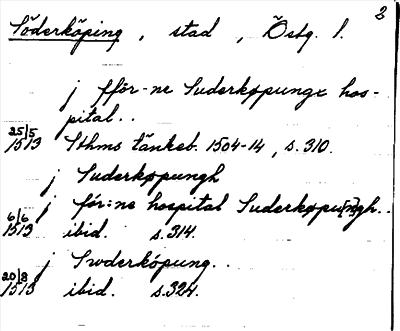 2
Söderköping, stad, Östg. l.
j fför-ne Suderkøpunge hos-
pital..
25/5
1513 Sthms tänkeb. 1504-14, s. 310.
j Suderkøpungh
j för:ne hospital Suderkøpu[n]gh..
6/6
1513 ibid. s. 314.
j Swderköpung..
20/8
1513 ibid. s. 324.